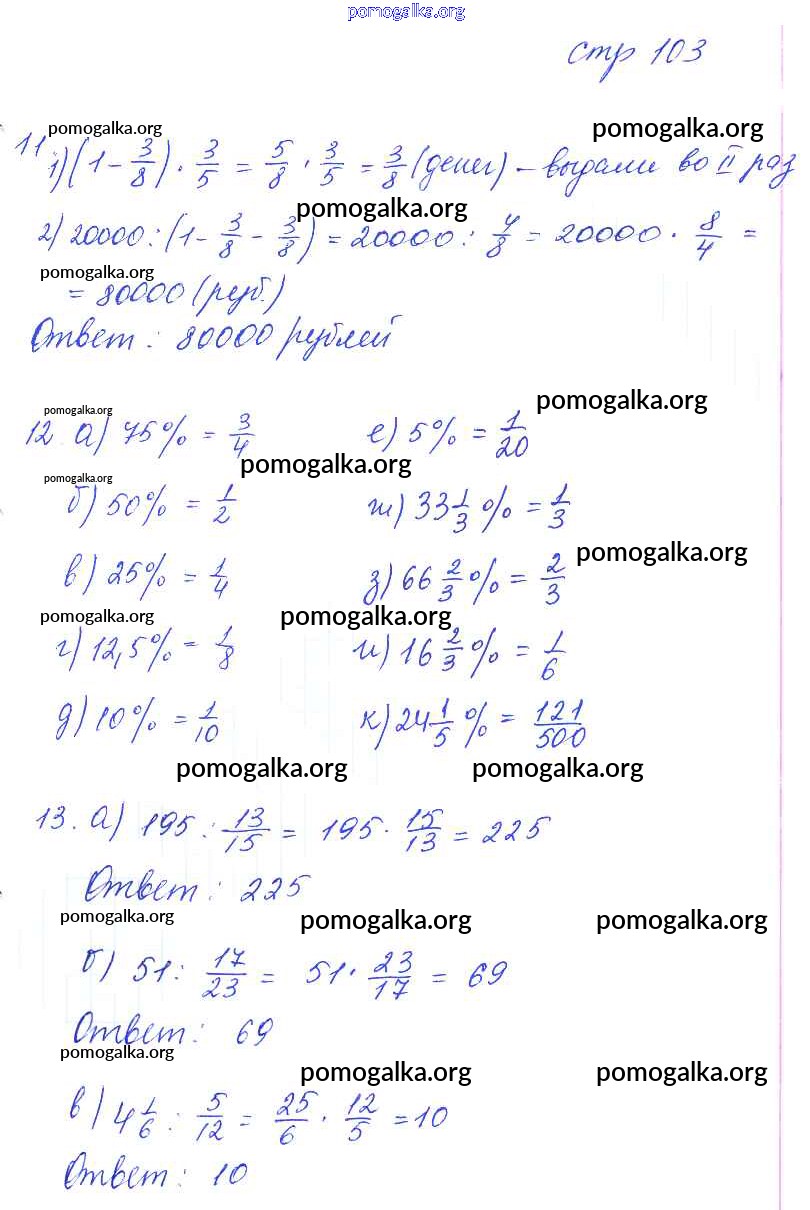 pomogalka.org
стр 103
pomogalka.org pomogalka.org
11 1) (1 - 3/8) · 3/5 = 5/8 · 3/5 = 3/8 (денег) - выдали во II раз
pomogalka.org
2) 20000 : (1 - 3/8 - 3/8) = 20000 : 4/8 = 20000 · 8/4 =
pomogalka.org
= 80000 (руб.)
Ответ: 80000 рублей
pomogalka.org pomogalka.org
12. а) 75% = 3/4 е) 5% = 1/20
pomogalka.org pomogalka.org
б) 50% = 1/2 ж) 33 1/3 % = 1/3
pomogalka.org
в) 25% = 1/4 з) 66 2/3 % = 2/3
pomogalka.org pomogalka.org
г) 12,5% = 1/8 и) 16 2/3 % = 1/6
д) 10% = 1/10 к) 24 1/5 % = 121/500
pomogalka.org pomogalka.org
13. а) 195 : 13/15 = 195 · 15/13 = 225
Ответ: 225
pomogalka.org pomogalka.org pomogalka.org
б) 51 : 17/23 = 51 · 23/17 = 69
Ответ: 69
pomogalka.org pomogalka.org pomogalka.org
в) 4 1/6 : 5/12 = 25/6 · 12/5 = 10
Ответ: 10